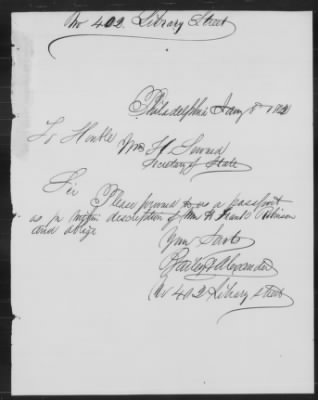 No 402. Library Street
Philadelphia Jany 8th 1862
To Honble
Wm H Seward
Secretary of State
Sir Please forward to us a passport
as pr within description of Wm H Frank Robinson
and oblige
Your Servts
& Alexander
No 402 Library Street